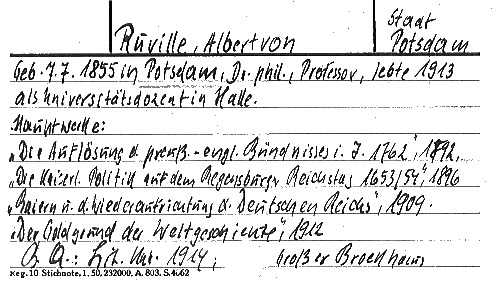 Ruville, Albert von
Stadt
Potsdam
Geb. 7.7. 1855 in Potsdam, Dr. phil., Professor, lebte 1913
als Universitätsdozent in Halle.
Hauptwerke:
„Die Auflösung d. preuß.-engl. Bündnisses i. J. 1762", 1892,
„Die Kaiserl. Politik auf dem Regensburger Reichstag 1653/54", 1896
„Baiern u. d. Wiederaufrichtung d. Deutschen Reichs", 1909.
„Der Goldgrund der Weltgeschichte", 1912
Q. A.: Lit. 1914, Großer Brockhaus
Reg. 10 Stichnote, 1, 50, 232000, A. 803. S. 4662